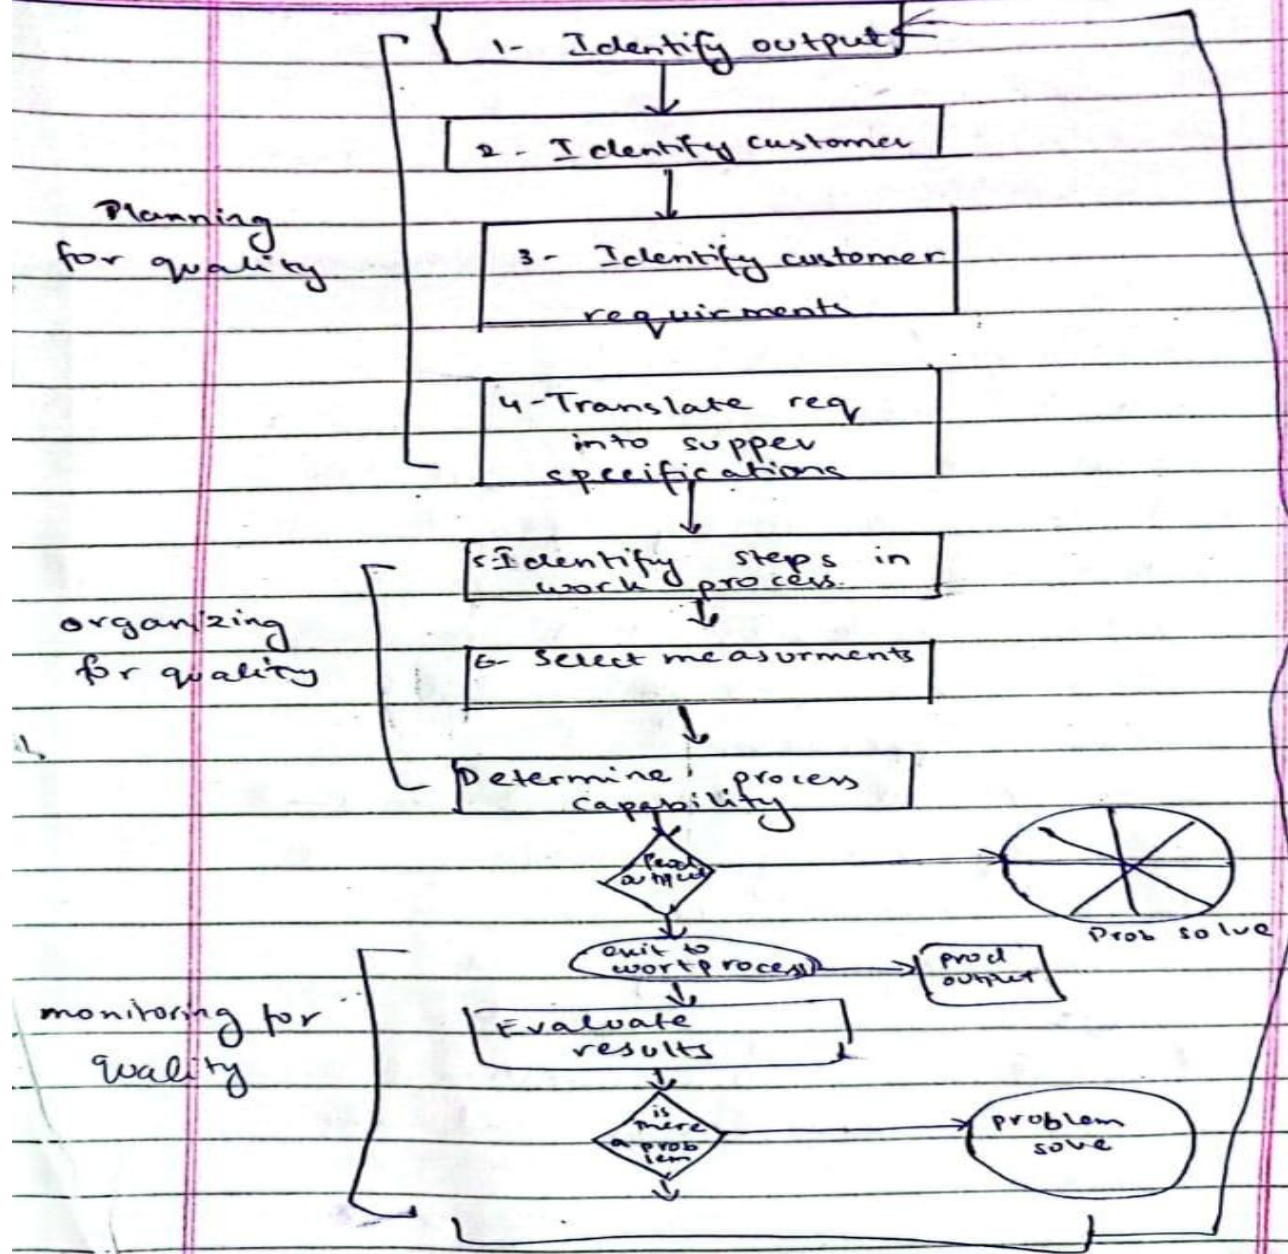 1- Identify output
2- Identify customer
Planning
for quality
3- Identify customer
requirments
4-Translate req
into supper
specifications
5-Identify steps in
work process.
organizing
for quality
6- Select measurments
Determine process
capability
Prod
output
Prob solve
exit to
workprocess
prod
output
monitoring for
quality
Evaluate
results
is
there
a prob
lem
problem
solve